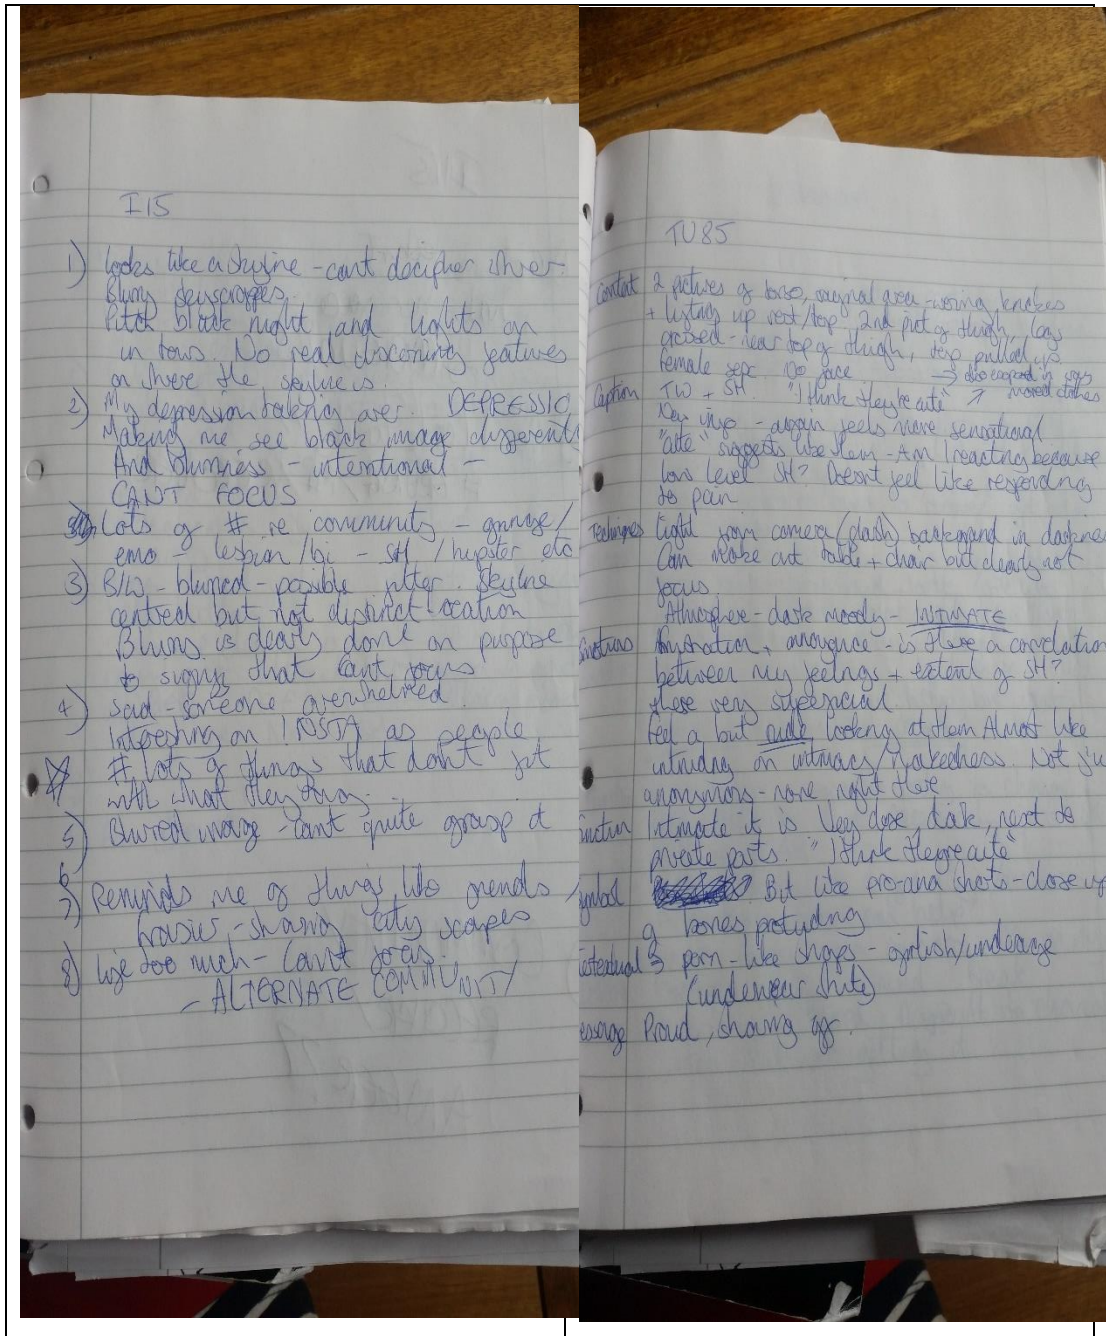 I15
1) Looks like a skyline - cant decipher where.
Blurry skyscrapers.
Pitch black night and lights on
in tows. No real discerning features
on where the skyline is.
2) My depression taking over. DEPRESSIO
Making me see black image different
And blurriness - intentional -
CANT FOCUS
Lots of # re community - grunge/
emo - lesbian/bi - SH/hipster etc
3) B/W - blurred - possible filter. Skyline
centred but not distinct location
Blurring is clearly done on purpose
to signify that cant focus
4) Sad - someone overwhelmed.
Interesting on INSTA as people
# lots of things that dont fit
with what they
5) Blurred image - cant quite grasp it
6
7) Reminds me of things like friends /
frasier - sharing city scapes
8) Life too much - Cant focus.
- ALTERNATE COMMUNITY
TU85
Content 2 pictures of torso, area - knickers
+ lifting up vest/top 2nd pict of thigh, leg
crossed - near top of thigh, top pulled up
female No face → also cropped in
moved clothes
Caption TW + SH. "I think theyre cute" ↗
New - again feels more sensational
"cute" suggests like them - Am I reacting because
low level SH? Doesnt feel like responding
to pain
Techniques Light from camera (flash) background in darknes
Can make out table + chair but clearly not
focus
Atmosphere - dark moody - INTIMATE
Frustration + annoyance - is there a correlation
between my feelings + extent of SH?
these very superficial.
Feel a bit rude looking at them Almost like
intruding on intimacy/nakedness. Not ju
anonymous - none right there
Intimate it is very close, dark, next to
private parts. "I think theyre cute"
But like pro-ana shots - close up
of bones protruding
porn-like shots - girlish/underage
(underwear shots)
Proud, showing off.